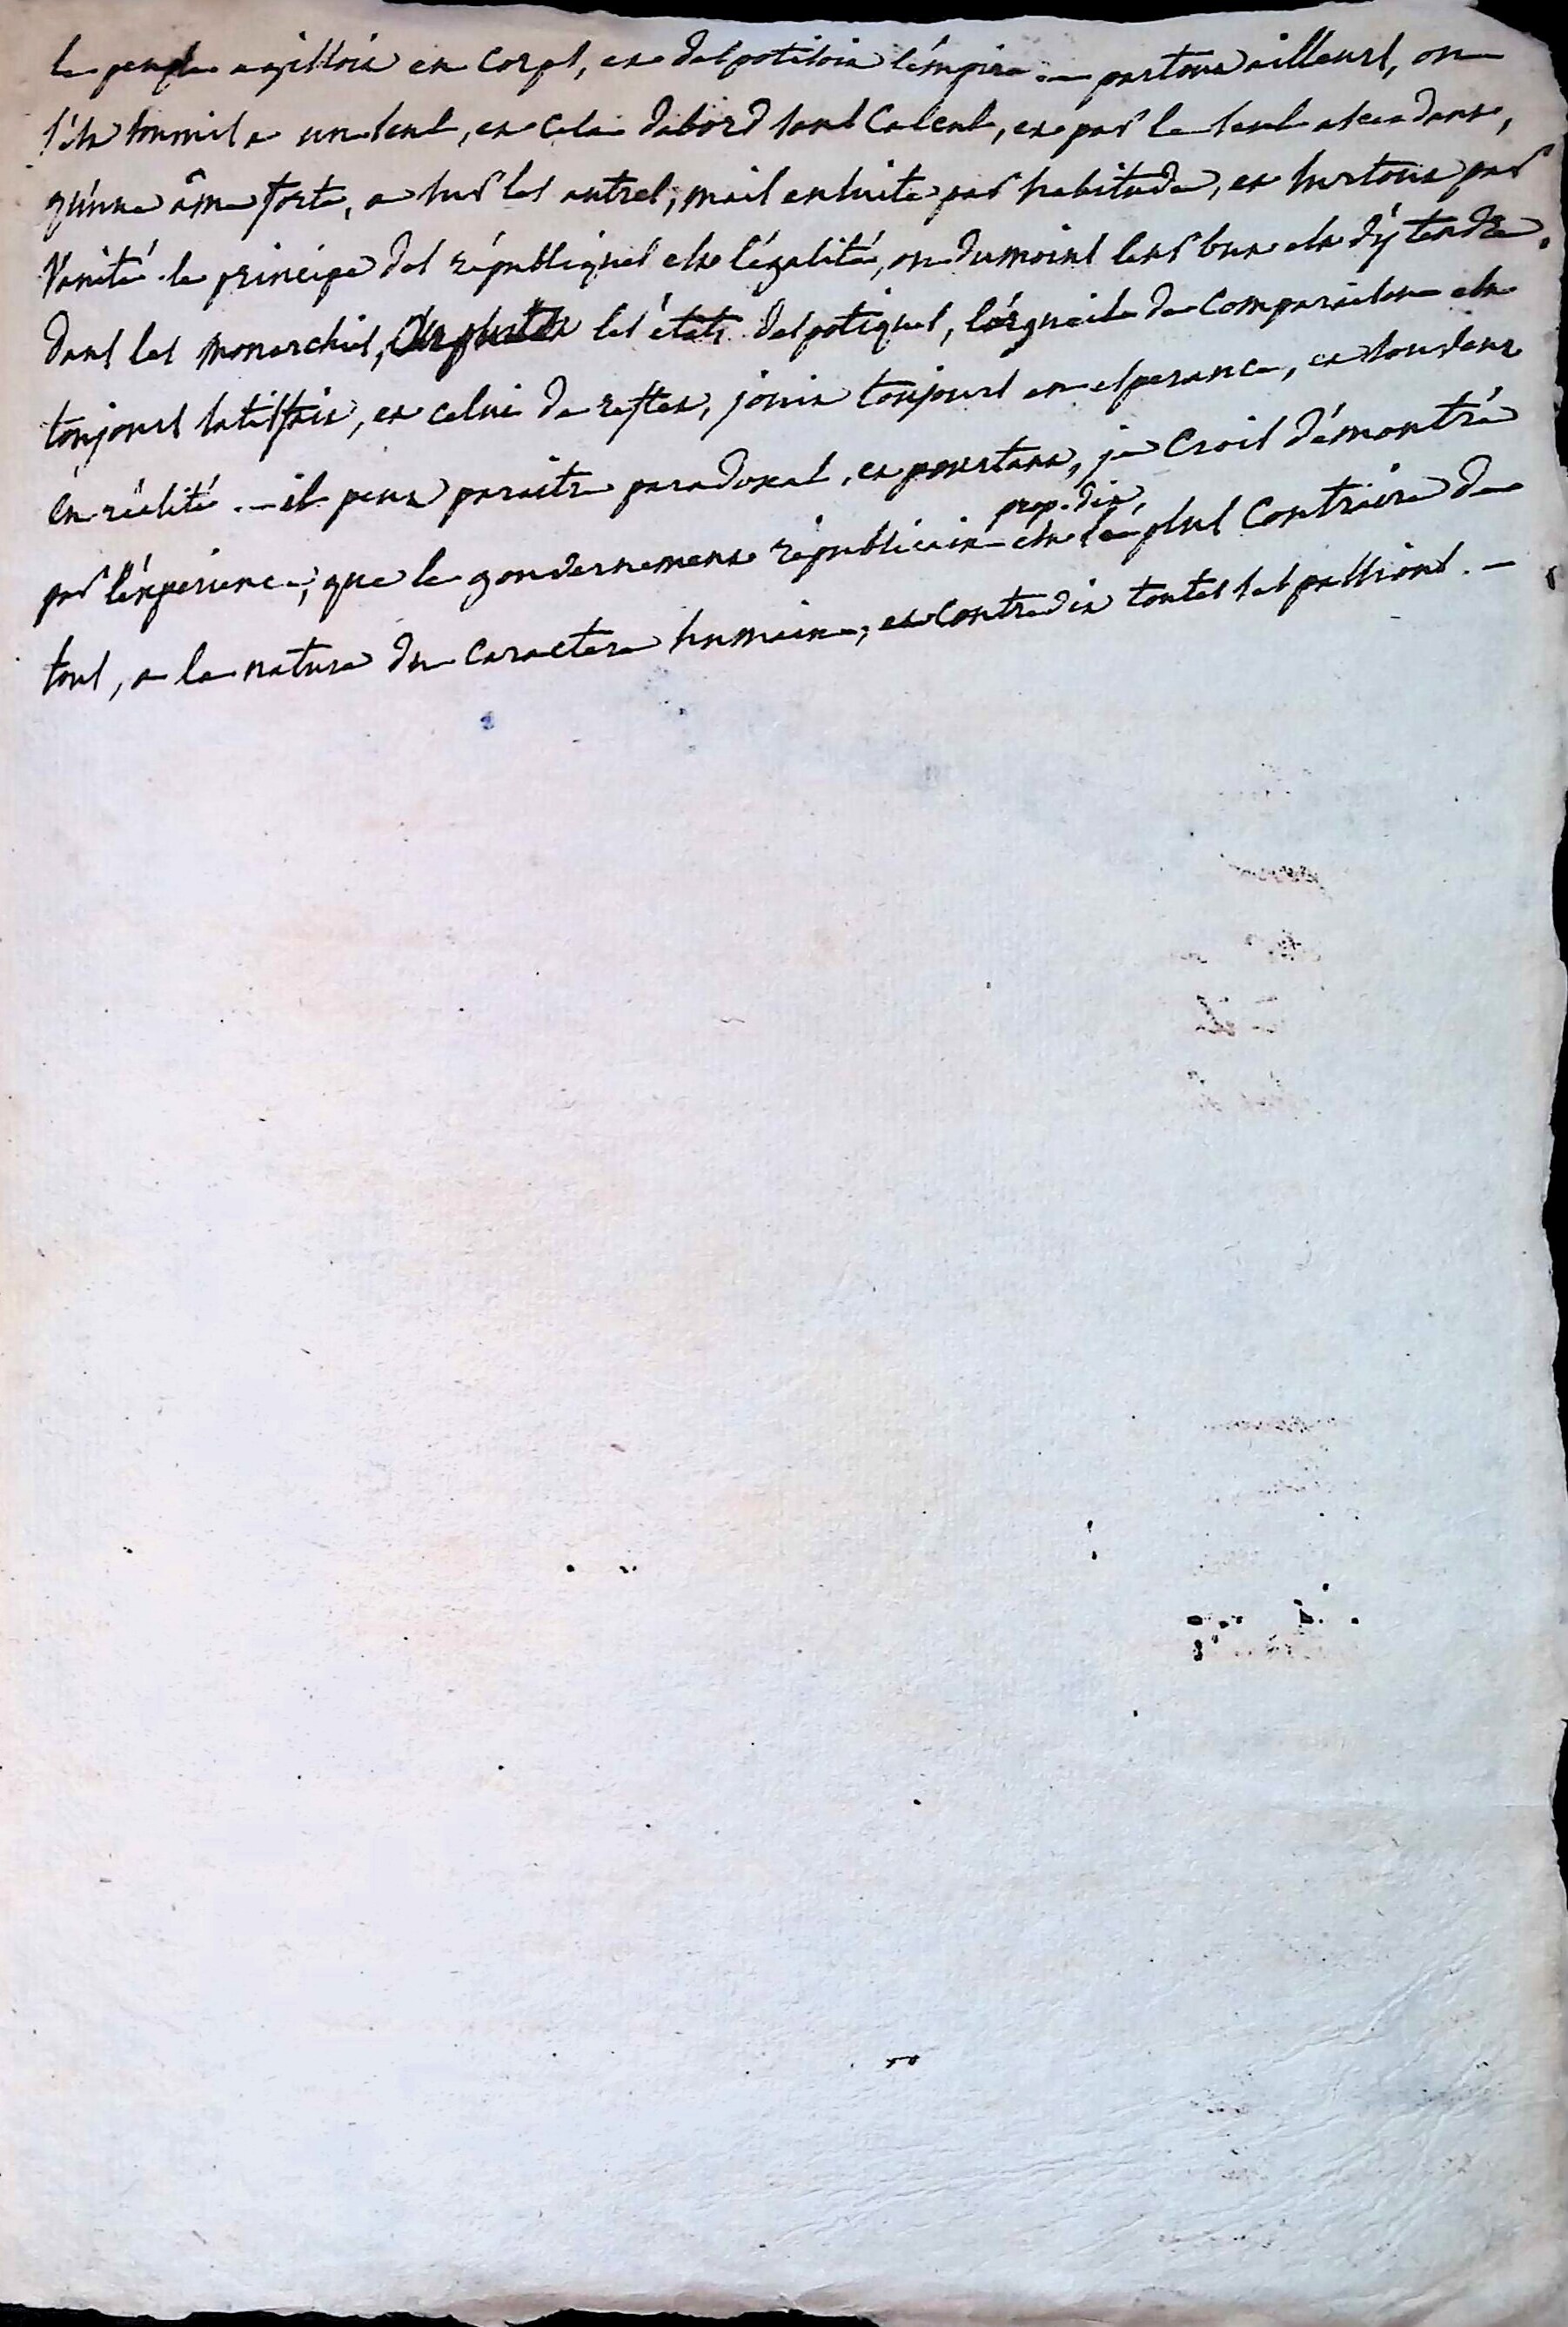 le peuple agissoit en corps, et despotisoit l'empire. — partout ailleurs, on
s'est soumis a un seul, et cela dabord sans calcul, et par le seul ascendant,
qu'une âme forte, a sur les autres, mais ensuite par habitude, et surtout par
vanité. le principe des républiques est l'égalité, ou dumoins leur but est d'ÿ tendre.
dans les monarchies, ou plutôt les états despotiques, l'orgueil de comparaison est
toujours satisfait, et celui de rester, jouit toujours en esperance, et souvent
en réalité. — il peut paraitre paradoxal, et pourtant, je crois démontré
par l'éxperience, que le gouvernement républicain prop. dit, est le plus contraire de
tous, a la nature du caractere humain, et contredit toutes ses passions. —